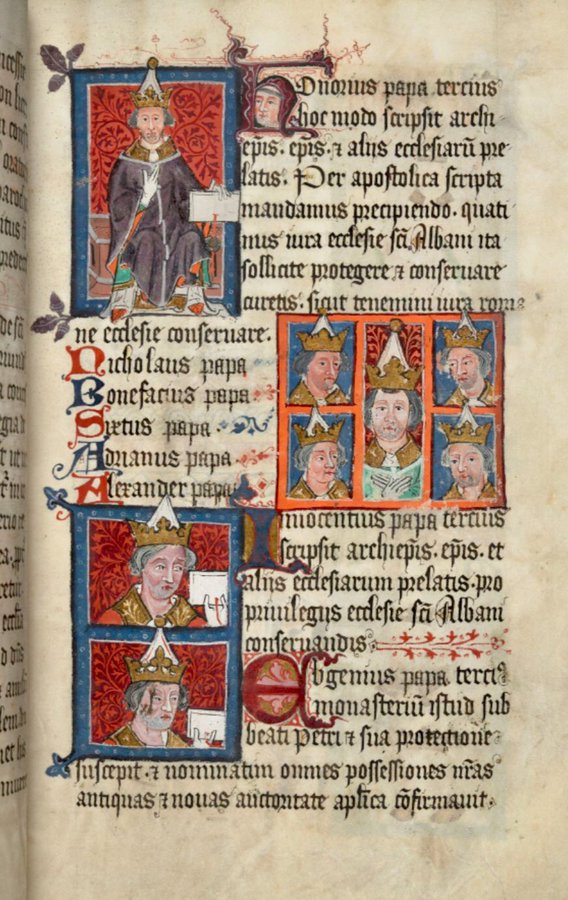 Honorius papa tercius
hoc modo scripsit archi
ep̄is. ep̄is. ⁊ aliis ecclesiarū pre
latis. Per apostolica scripta
mandamus precipiendo. quati
nus iura ecclesie sc̄i Albani ita
sollicite protegere ⁊ conseruare
curetis. sicut tenemini iura roma
ne ecclesie conseruare.
Nicholaus papa
Bonefacius papa
Sixtus papa
Adrianus papa
Alexander papa
Innocentius papa tercius
scripsit archiep̄is. ep̄is. et
aliis ecclesiarum prelatis. pro
priuilegiis ecclesie sc̄i Albani
conseruandis
Eugenius papa terciꝰ
monasteriū istud sub
beati Petri ⁊ sua protectione
suscepit. ⁊ nominatim omnes possessiones nr̄as
antiquas ⁊ nouas auctoritate apl̄ica cōfirmauit.